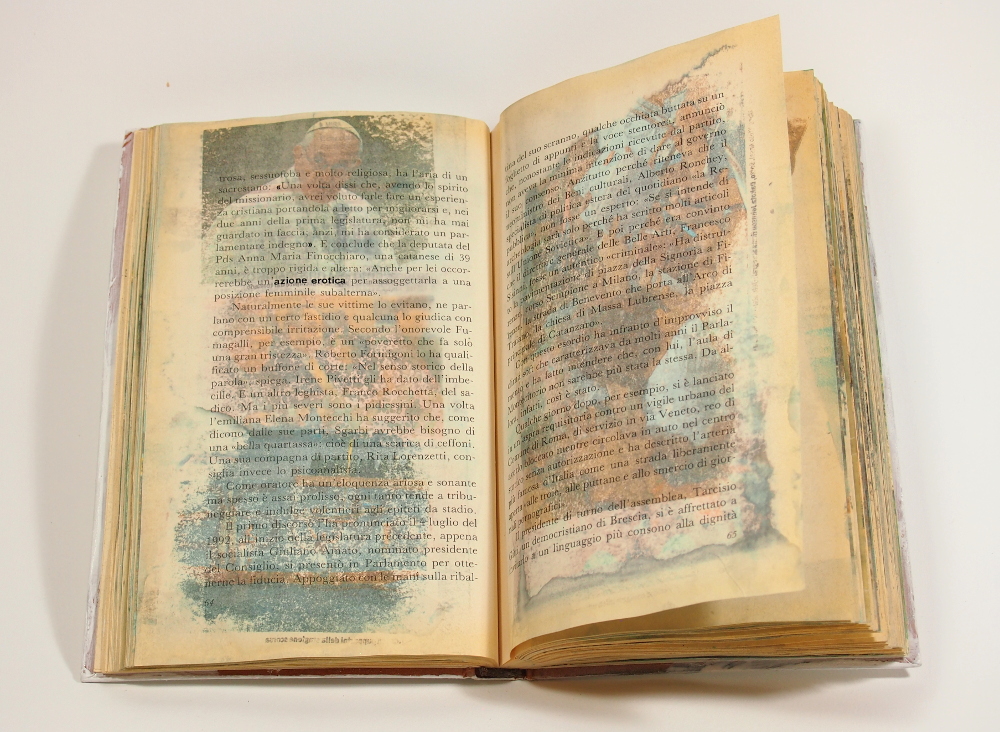 trosa, sessuofoba e molto religiosa, ha l'aria di un
sacrestano: «Una volta dissi che, avendo lo spirito
del missionario, avrei potuto fare un'esperien-
za cristiana portandola a letto per migliorarsi e, nei
due anni della prima legislatura, non mi ha mai
guardato in faccia, anzi, mi ha considerato un par-
lamentare indegno». E conclude che la deputata del
Pds Anna Maria Finocchiaro, una catanese di 39
anni, è troppo rigida e altera: «Anche per lei occor-
rerebbe un'azione erotica per assoggettarla a una
posizione femminile subalterna».
Naturalmente le sue vittime lo evitano, ne par-
lano con un certo fastidio e qualcuno lo giudica con
comprensibile irritazione. Secondo l'onorevole Fu-
magalli, per esempio, è un «poveretto che fa solo
una gran tristezza». Roberto Formigoni lo ha quali-
ficato un buffone di corte: «Nel senso storico della
parola», spiega. Irene Pivetti gli ha dato dell'imbe-
cille. E un altro leghista, Franco Rocchetta, del sa-
dico. Ma i più severi sono i pidiessini. Una volta
l'emiliana Elena Montecchi ha suggerito che, come
dicono dalle sue parti, Sgarbi avrebbe bisogno di
una «bella quartassa»: cioè di una scarica di ceffoni.
Una sua compagna di partito, Rita Lorenzetti, con-
siglia invece lo psicoanalista.
Come oratore ha un'eloquenza ariosa e sonante
ma spesso è assai prolisso, ogni tanto tende a tribu-
neggiare e indulge volentieri agli epiteti da stadio.
Il primo discorso l'ha pronunciato il luglio del
1992, all'inizio della legislatura precedente, appena
il socialista Giuliano Amato, nominato presidente
del Consiglio, si presentò in Parlamento per otte-
nerne la fiducia. Appoggiato con le mani sulla ribal-
64
del suo scranno, qualche occhiata buttata su un
foglietto di appunti e la voce stentorea, annunciò
che, nonostante le indicazioni ricevute dal partito,
non aveva la minima intenzione di dare al governo
il suo consenso. Anzitutto perché riteneva che il
ministro dei Beni culturali, Alberto Ronchey,
di politica estera del quotidiano «la Re-
pubblica», non fosse un esperto: «Se si intende di
sarà solo perché ha scritto molti articoli
Sovietica». E poi perché era convinto
che il direttore generale delle Belle Arti, Francesco
fosse un autentico «criminale»: «Ha distrut-
pavimentazione di piazza della Signoria a Fi-
strada Sempione a Milano, la stazione di Fi-
di Benevento che porta all'Arco di
la chiesa di Massa Lubrense, la piazza
di Catanzaro».
questo esordio ha infranto d'improvviso il
che caratterizzava da molti anni il Parla-
e ha fatto intendere che, con lui, l'aula di
non sarebbe più stata la stessa. Da al-
infatti, così è stato.
Qualche giorno dopo, per esempio, si è lanciato
in un'aspra requisitoria contro un vigile urbano del
Comune di Roma, di servizio in via Veneto, reo di
bloccato mentre circolava in auto nel centro
senza autorizzazione e ha descritto l'arteria
più famosa d'Italia come una strada liberamente
alle troie, alle puttane e allo smercio di gior-
pornografici.
Il presidente di turno dell'assemblea, Tarcisio
un democristiano di Brescia, si è affrettato a
un linguaggio più consono alla dignità
65